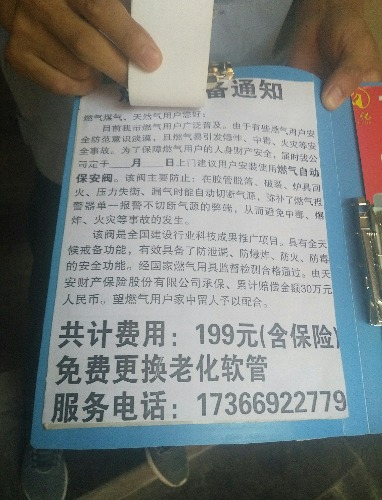 备通知
燃气煤气、天然气用户您好:
目前我市燃气用户广泛普及。由于有些燃气用户安
全防范意识淡薄，且燃气易引发爆炸、中毒、火灾等安
全事故。为了保障燃气用户的人身财产安全，届时我公
司定于 月 日上门建议用户安装使用燃气自动
保安阀。该阀主要防止：在胶管脱落、破裂、炉具回
火、压力失衡、漏气时能自动切断气源，弥补了燃气报
警器单一报警不切断气源的弊端，从而避免中毒、爆
炸、火灾等事故的发生。
该阀是全国建设行业科技成果推广项目。具有全天
候戒备功能，有效具备了防泄漏、防爆炸、防火、防毒
的安全功能。经国家燃气用具监督检测合格通过。由天
安财产保险股份有限公司承保、累计赔偿金额30万元
人民币。望燃气用户家中留人予以配合。
共计费用：199元(含保险)
免费更换老化软管
服务电话：17366922779